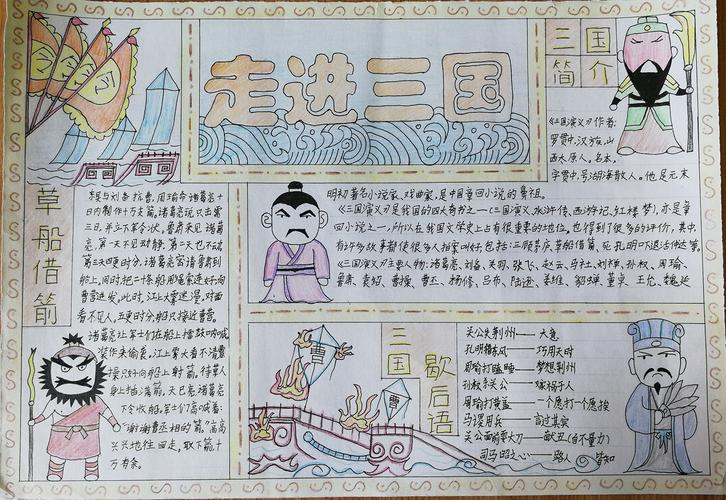 走进三国
三国
简介
《三国演义》作者:
罗贯中,汉族,山
西太原人。名本,
字贯中,号湖海散人。他是元末
明初著名小说家、戏曲家,是中国章回小说的鼻祖。
《三国演义》是我国的四大奇书之一(三国演义,水浒传,西游记,红楼梦),亦是章
回小说之一,所以在我国文学史上占有很重要的地位,也得到了很多的评价,其中
有许多故事都使很多人拍案叫好,包括:三顾茅庐,草船借箭,死孔明吓退活仲达等。
《三国演义》主要人物:诸葛亮、刘备、关羽、张飞、赵云、马社、刘禅、孙权、周瑜、
鲁肃、袁绍、曹操、曹丕、杨修、吕布、陆逊、姜维、貂蝉、董卓、王允、魏延
草船借箭
孙权与刘备抗曹,周瑜命诸葛亮十
日内制作十万支箭,诸葛亮说只出需
三日,并立下军令状。鲁肃来见诸葛
亮,第一天不见动静,第二天也不动
第三天四更时分,诸葛亮密请鲁肃到
船上,同时,把二十条船用绳索连好,向
曹营进发。此时,江上大雾迷漫,对面
看不见人,五更时分船只接近曹营
诸葛亮让军士们在船上擂鼓呐喊
装作来偷袭,江上雾大看不清曹
操只好向船上射箭。待草人
身上插满箭,天已亮,诸葛亮
下令收船,军士们高喊着:
“谢谢曹丞相的箭”高高
兴兴地往回走,取下箭十
万有余。
三国
歇后语
曹
曹
关公失荆州——大意
孔明借东风——巧用天时
周瑜打瞌睡——梦想荆州
孙权杀关公——嫁祸于人
周瑜打黄盖——一个愿打一个愿挨
马谡用兵——言过其实
关公面前耍大刀——献丑(自不量力)
司马昭之心——路人皆知